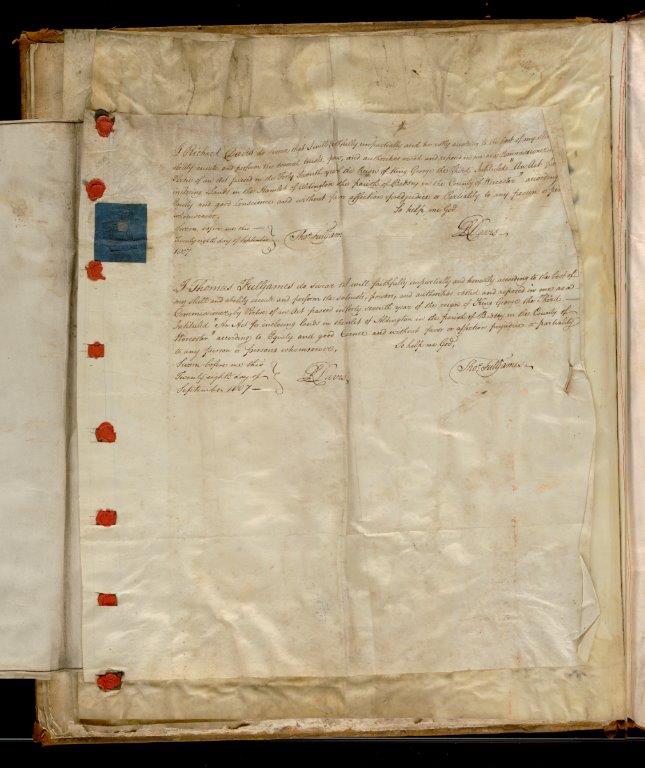 I Richard Davis do swear that I will faithfully impartially and honestly according to the best of my skill
ability execute and perform the several trusts, powers and authorities vested and reposed in me as a Commissioner
Virtue of an Act passed in the Forty Seventh year the Reign of King George the Third Intitled "An Act for
inclosing Lands in the Hamlet of Aldington the parish of Badsey in the County of Worcester" according
Equity and good Conscience and without favor affection prejudice or Partiality to any person or per
whomsoever,
So help me God
Sworn before me this
Twenty eighth day of September
1807
Thos. Fulljames
R Davis
I Thomas Fulljames do swear that I will faithfully impartially and honestly according to the best of
my skill and ability execute and perform the trusts, powers, and authorities vested and reposed in me as a
Commissioner, by Virtue of an Act passed in forty seventh year of the reign of King George the Third
Intituled "An Act for inclosing lands in hamlet of Aldington in the parish of Badsey in the County of
Worcester" according to Equity and good Conscience and without favor or affection prejudice or partiality
to any person or persons whomsoever,
So help me God,
Sworn before me this
Twenty eighth day of
September 1807
R Davis
Thos. Fulljames